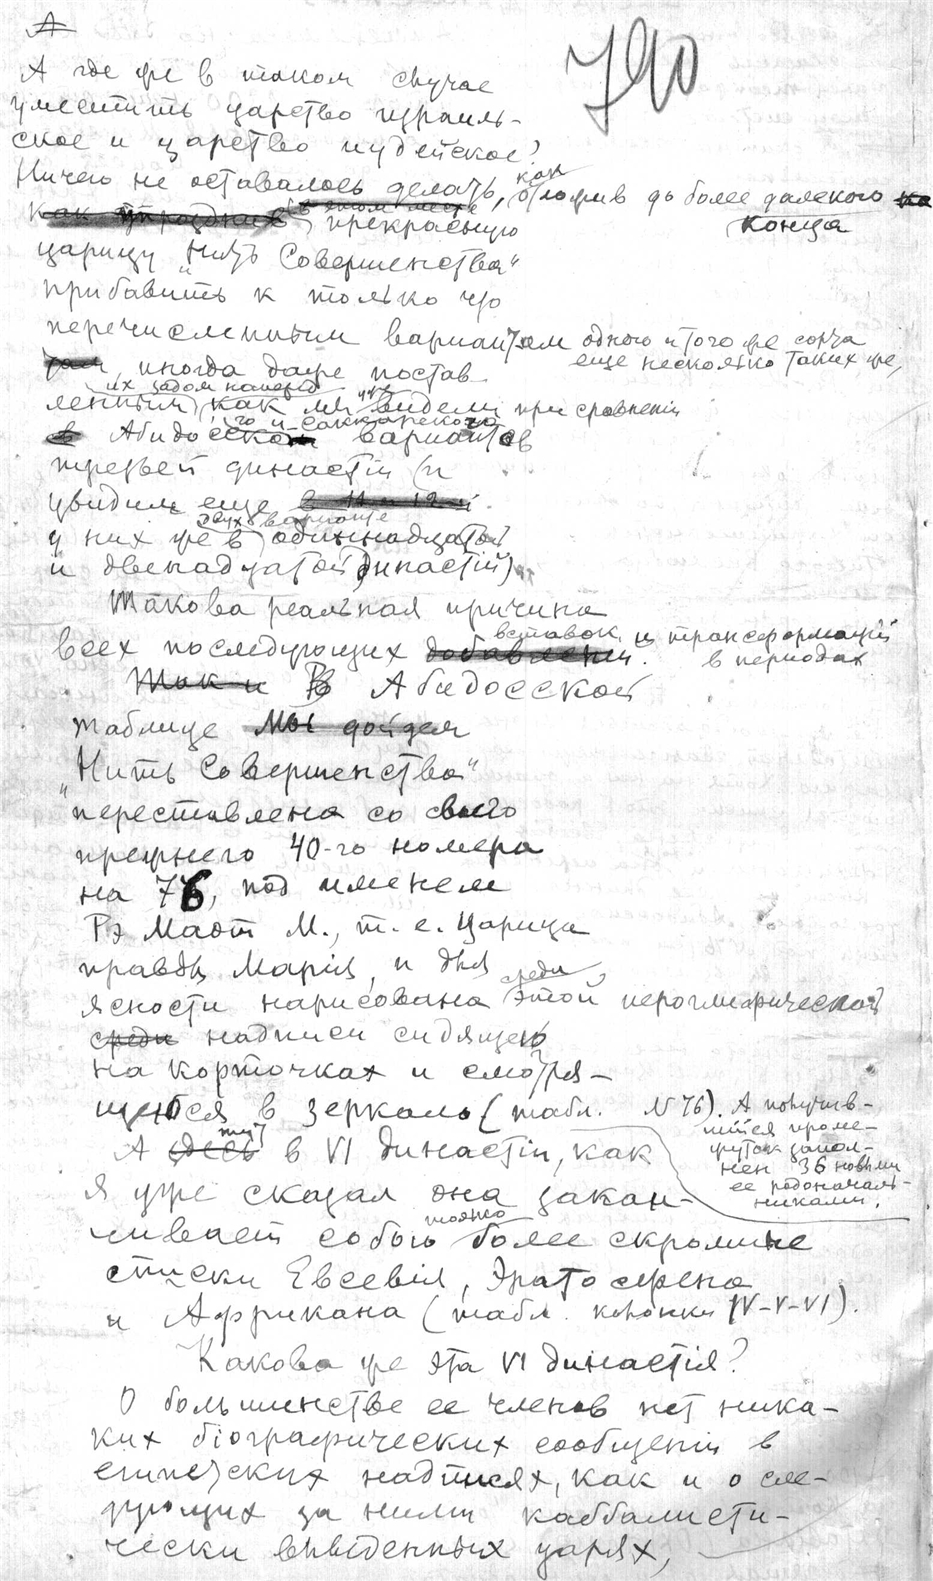 790
А где же в таком случае
уместить царство израиль-
ское и царство иудейское?
Ничего не оставалось делать, как отложив до более далекого
конца
прекрасную
царицу „Нить Совершенства“
прибавить к только что
перечисленным вариантам одного и того же солнца
еще несколько таких же,
иногда даже постав
ленным их задом наперед, как мы уже видели при сравнении
Абидосского и саккарского вариантов
третьей династіи (и
увидим еще
у них же в двух варианте одиннадцатой
и двенадцатой династій)
Такова реальная причина
всех последующих вставок и трансформаций
в периодах
В Абидосской
таблице мы дойдем
„Нить Совершенства“
переставлена со своего
прежнего 40-го номера
на 76, под именем
Рэ Маот М., т. е. Царица
правды Марія, и для
ясности нарисована среди этой иероглифической
надписи сидящею
на корточках и смотря-
щеюся в зеркало (табл. N 76). А получив-
шійся проме-
жуток запол-
нен 36 новыми
ее родоначаль-
никами.
А тут в VI династіи, как
я уже сказал она закан-
чивает собою только более скромные
списки Евсевія, Эратосфена
и Африкана (табл. колонки IV-V-VI).
Какова же эта VI династія?
О большинстве ее членов нет ника-
ких біографических сообщеній в
египетских надписях, как и о сле-
дующих за ними каббалисти-
чески выведенных царях,